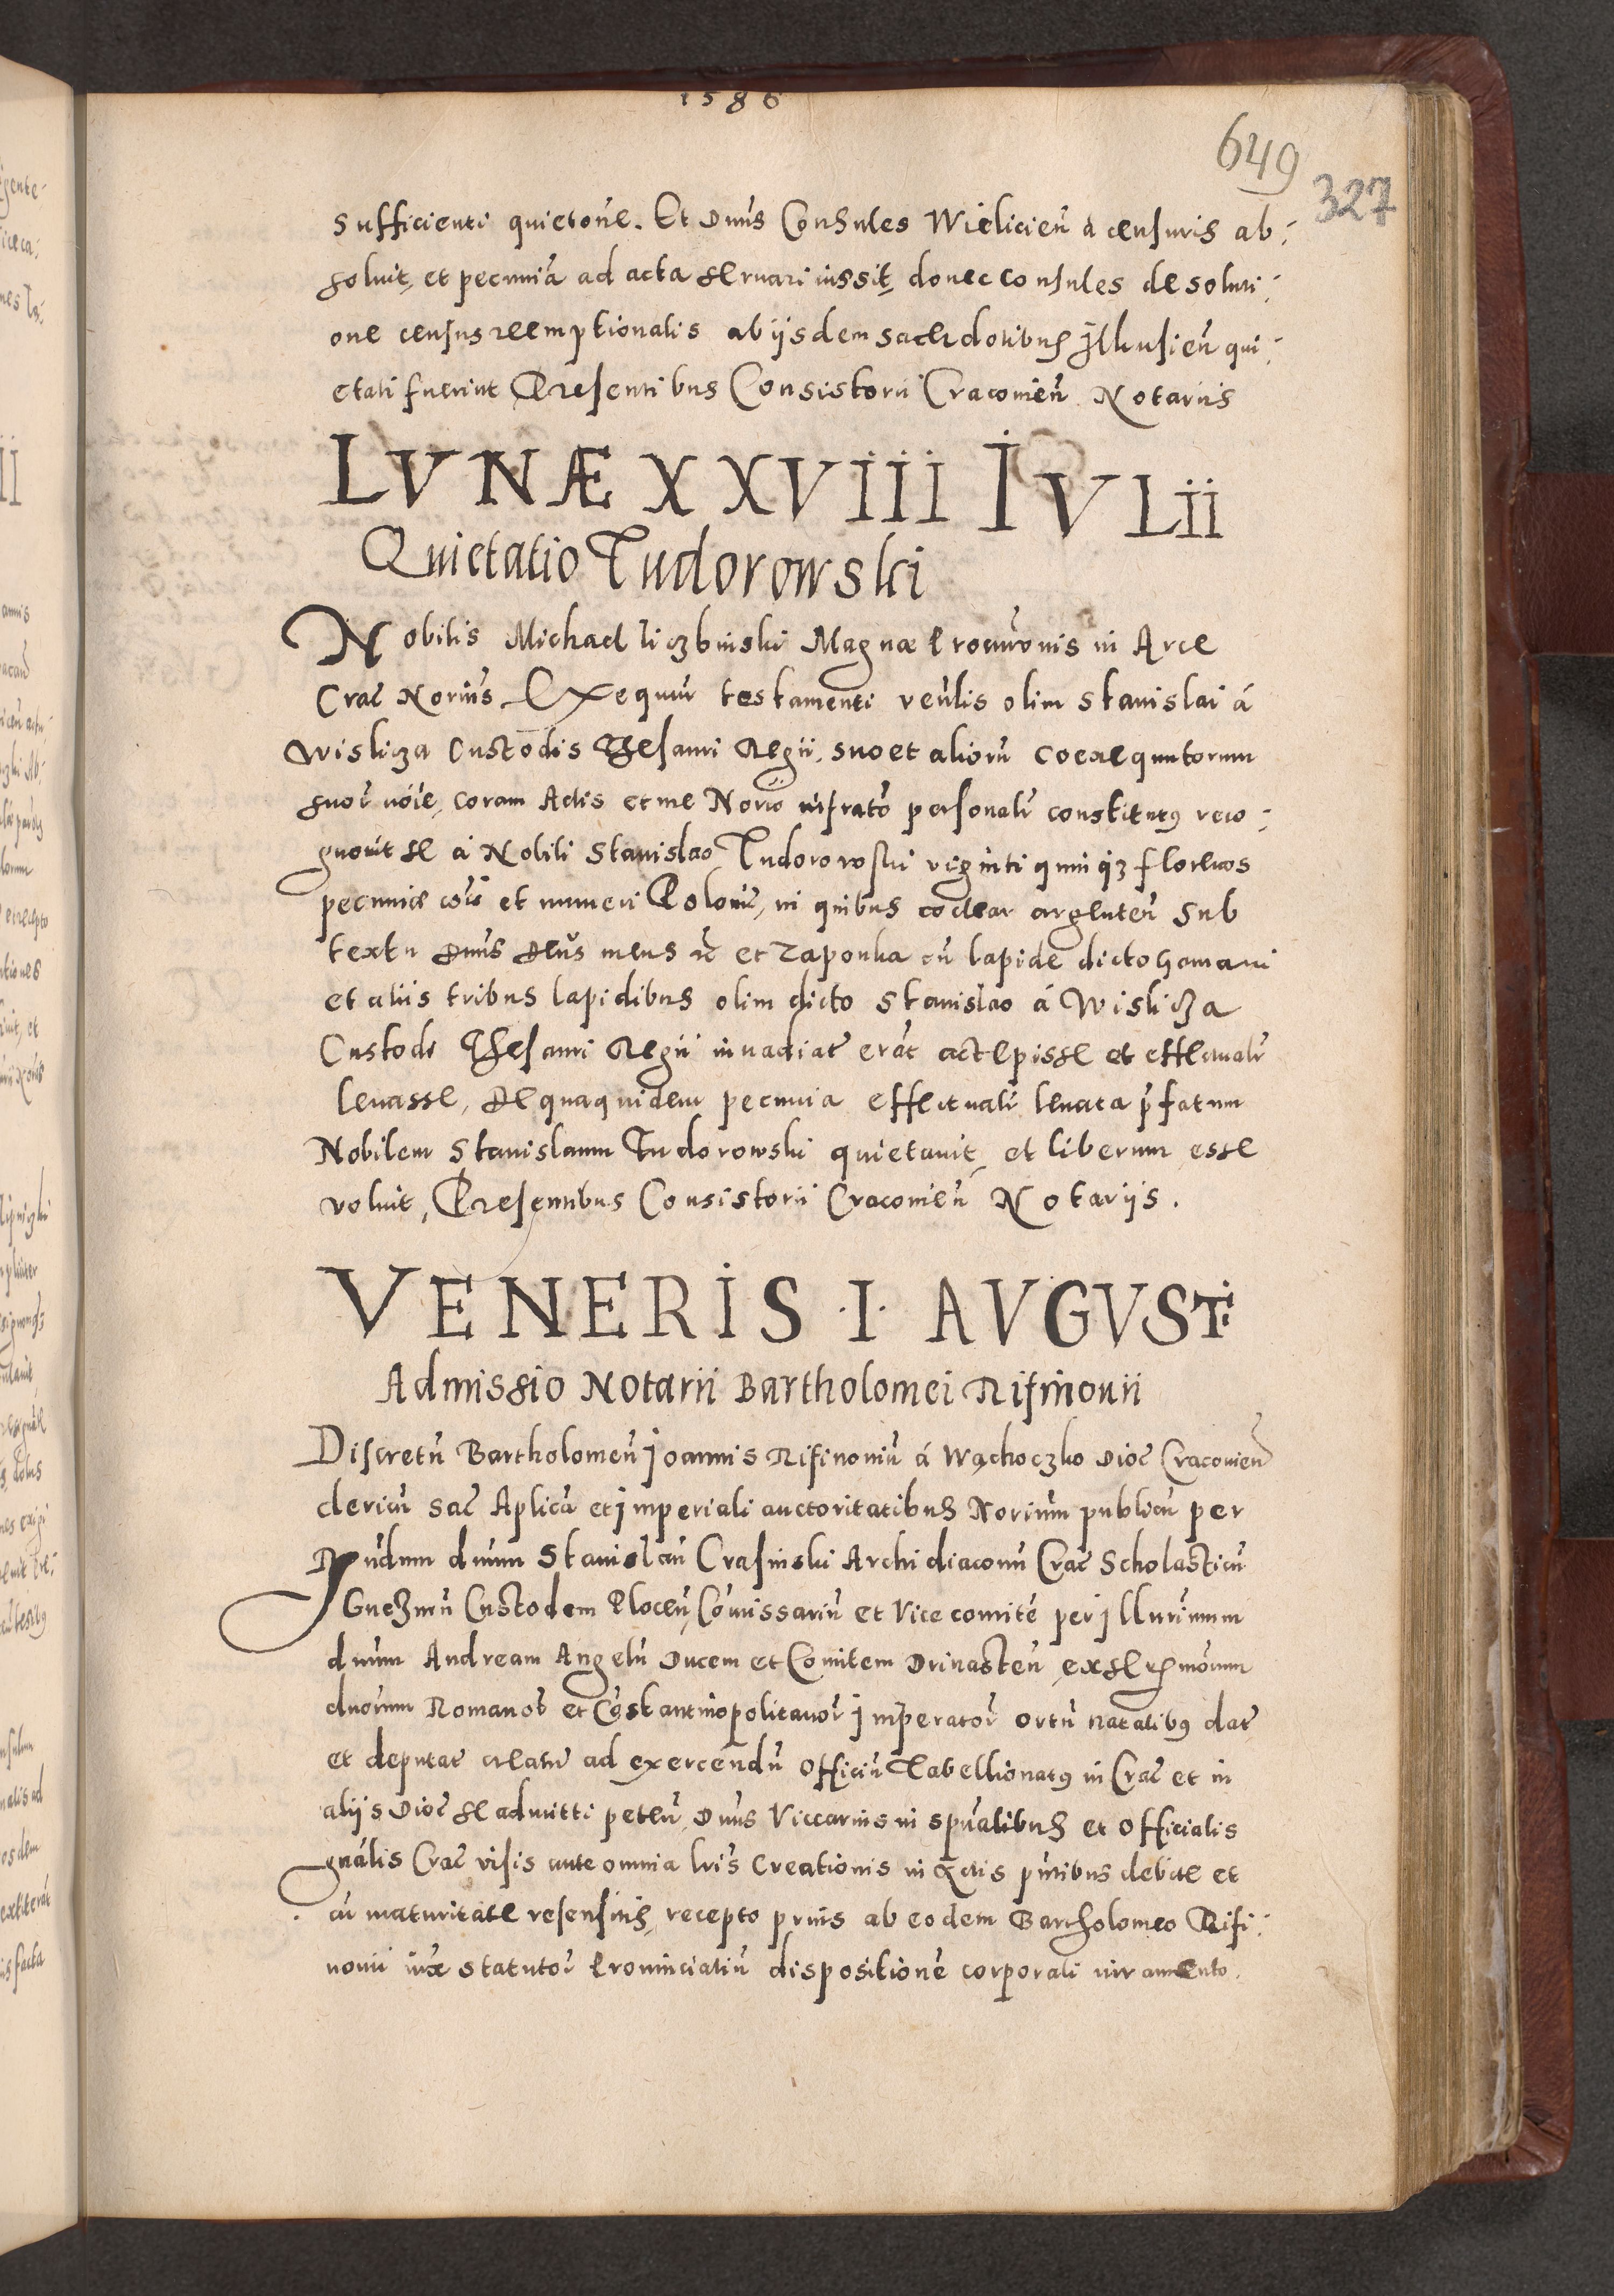 1586
649
327
sufficienti quietone. Et Dnus Consules Wielicien a censuris ab:
soluit, et pecunia ad acta seruari iussit, donec consules de soluti:
one census reemptionalis ab ijsdem sacerdotibus Ilkusien qui:
etati fuerint Presentibus Consistorii Cracouien Notariis
LVNÆ XXVIII IVLII
Quietatio Tudorowski
Nobilis Michael liczbinski Magnæ Procuronis in Arce
Crac Norius Exequut testamenti venlis olim Stanislai á
Wislicza Custodis Thesauri Regii, suo et aliorū coexequutorum
suor noie, coram Actis et me Norio infrato personalr constitutus reco:
gnouit se a Nobili Stanislao Tudorowski viginti quinqz florenos
pecuniæ cois et numeri Polonic, in quibus coclear argenteū sub
textu Dnus Deus meus &c et Zaponka cū lapide dicto Gamaui
et aliis tribus lapidibus olim dicto Stanislao á Wislicza
Custodi Thesauri Regii inuadiat erāt accepisse et effectualr
leuasse, de quaquidem pecunia effectualr leuata pfatum
Nobilem Stanislaum Tudorowski quietauit, et liberum esse
voluit, Presentibus Consistorii Cracouien Notariis.
VENERIS .I. AVGVSTI
Admissio Notarii Bartholomei Rifinouii
Discretū Bartholomeū Joannis Rifinouiū á Wąchoczko Dioc Cracouien
clericū sac Aplica et Imperiali auctoritatibus Norium publicū per
Rndum dnum Stanislaū Crasinski Archidiaconū Crac Scholasticū
Gneznen Custodem Plocen, Comissariū et Vice comitē per Illurimum
dnum Andream Angelū Ducem et Comitem Driuasten, ex serenmorum
dnorum Romanor et Constantinopolitanor Imperator ortū natalibus dat
et deputat creatū ad exercendū Officiū Tabellionatus in Crac et in
aliis Dioc se admitti peten, Dnus Viccarius in spualibus et Officialis
gnalis Crac visis ante omnia lris Creationis in Actis pntibus debite et
cū maturitate resensitis, recepto prius ab eodem Bartholomeo Rifi:
nouii iuxta statutor Prouincialiū dispositionē corporali iuramento.